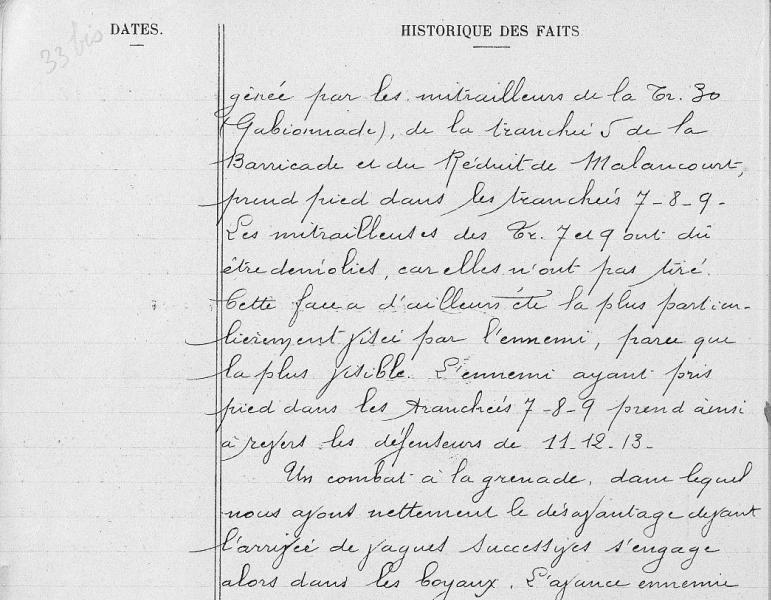 33 bis
DATES.
HISTORIQUE DES FAITS
gênée par les mitrailleurs de la Tr. 30
(Gabionnade), de la tranchée 5 de la
Barricade et du Réduit de Malancourt,
prend pied dans les tranchées 7-8-9-
Les mitrailleuses des Tr. 7 et 9 ont dû
être démolies, car elles n'ont pas tiré.
Cette face a d'ailleurs été la plus particu-
lièrement visée par l'ennemi, parce que
la plus visible. L'ennemi ayant pris
pied dans les tranchées 7-8-9 prend ainsi
à revers les défenseurs de 11-12-13-
Un combat à la grenade, dans lequel
nous avons nettement le désavantage devant
l'arrivée de vagues successives s'engage
alors dans les boyaux. L'avance ennemie